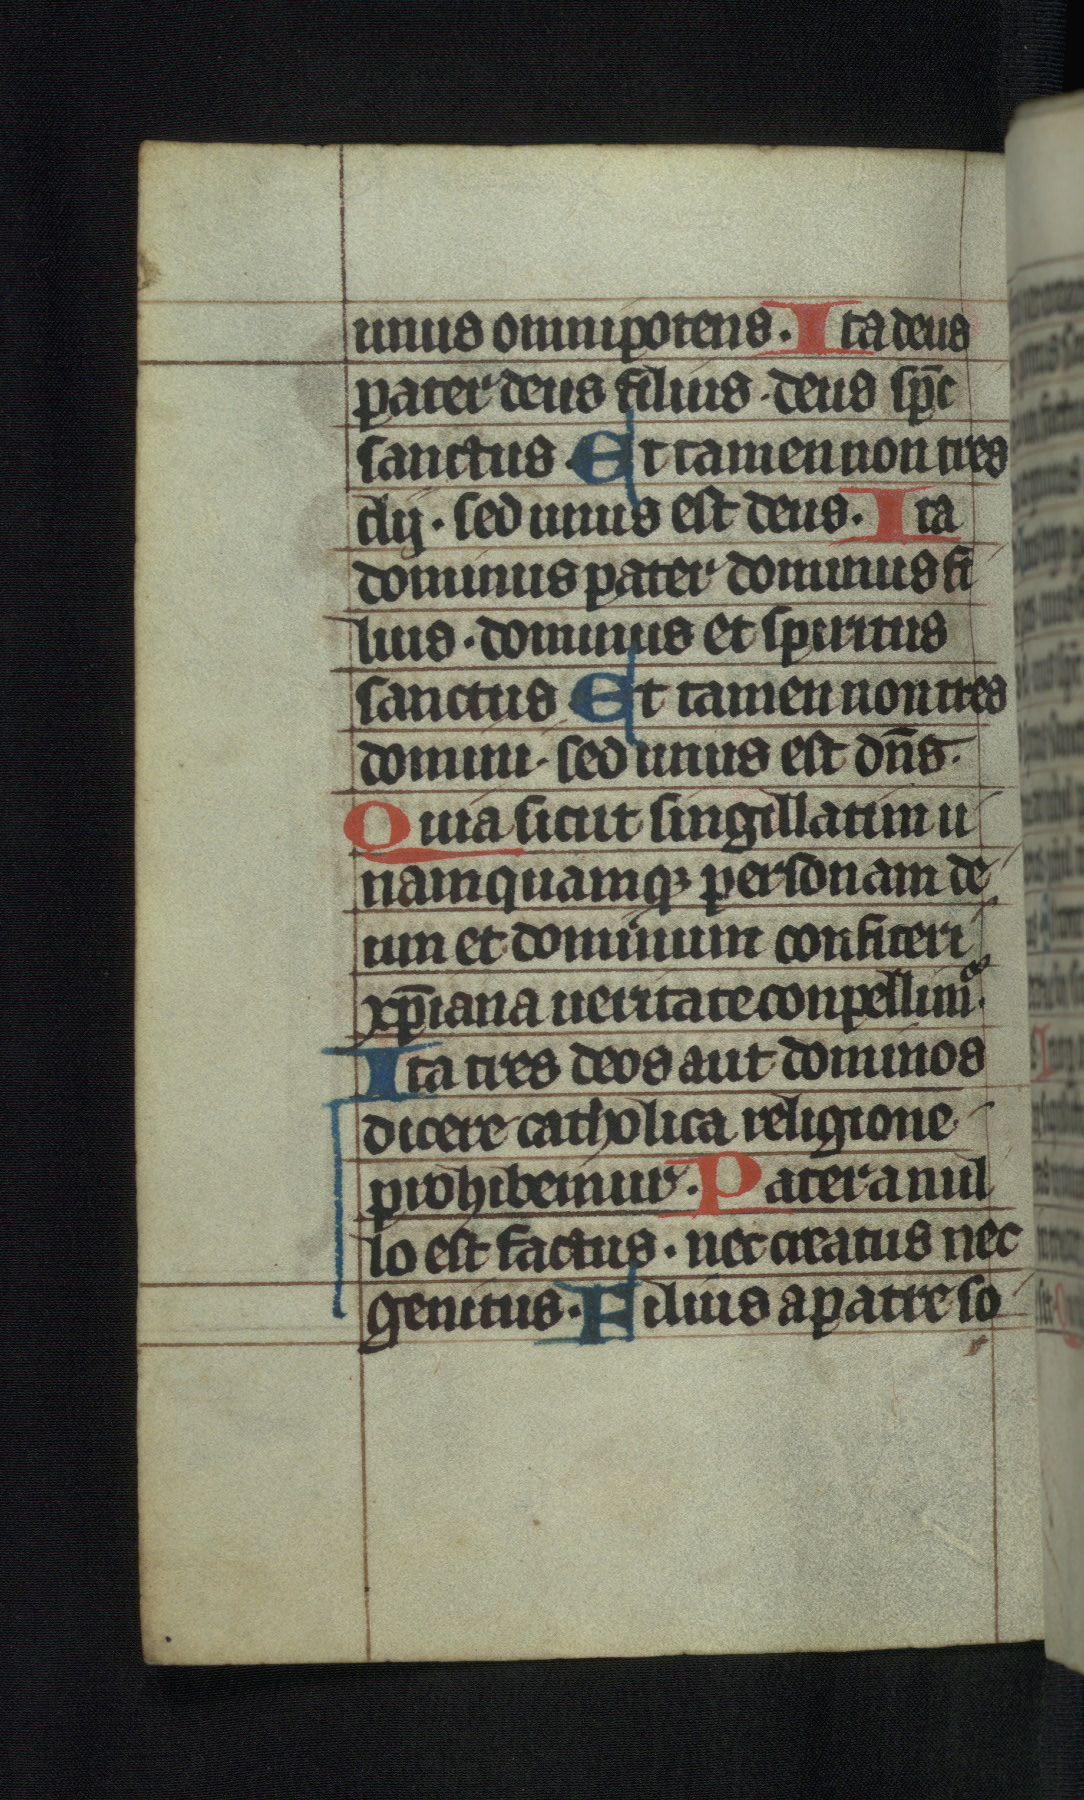 unus omnipotens. Ita deus
pater deus filius. deus sp̅c
sanctus. Et tamen non tres
dij. sed unus est deus. Ita
dominus pater dominus fi
lius. dominus et spiritus
sanctus Et tamen non tres
domini. sed unus est dn̅s.
Quia sicut singillatim u
namquamqꝫ personam de
um et dominum confiteri
xp̅iana ueritate conpellimꝰ.
Ita tres deos aut dominos
dicere catholica religione
prohibemur. Pater a nul
lo est factus. nec creatus nec
genitus. Filius a patre so